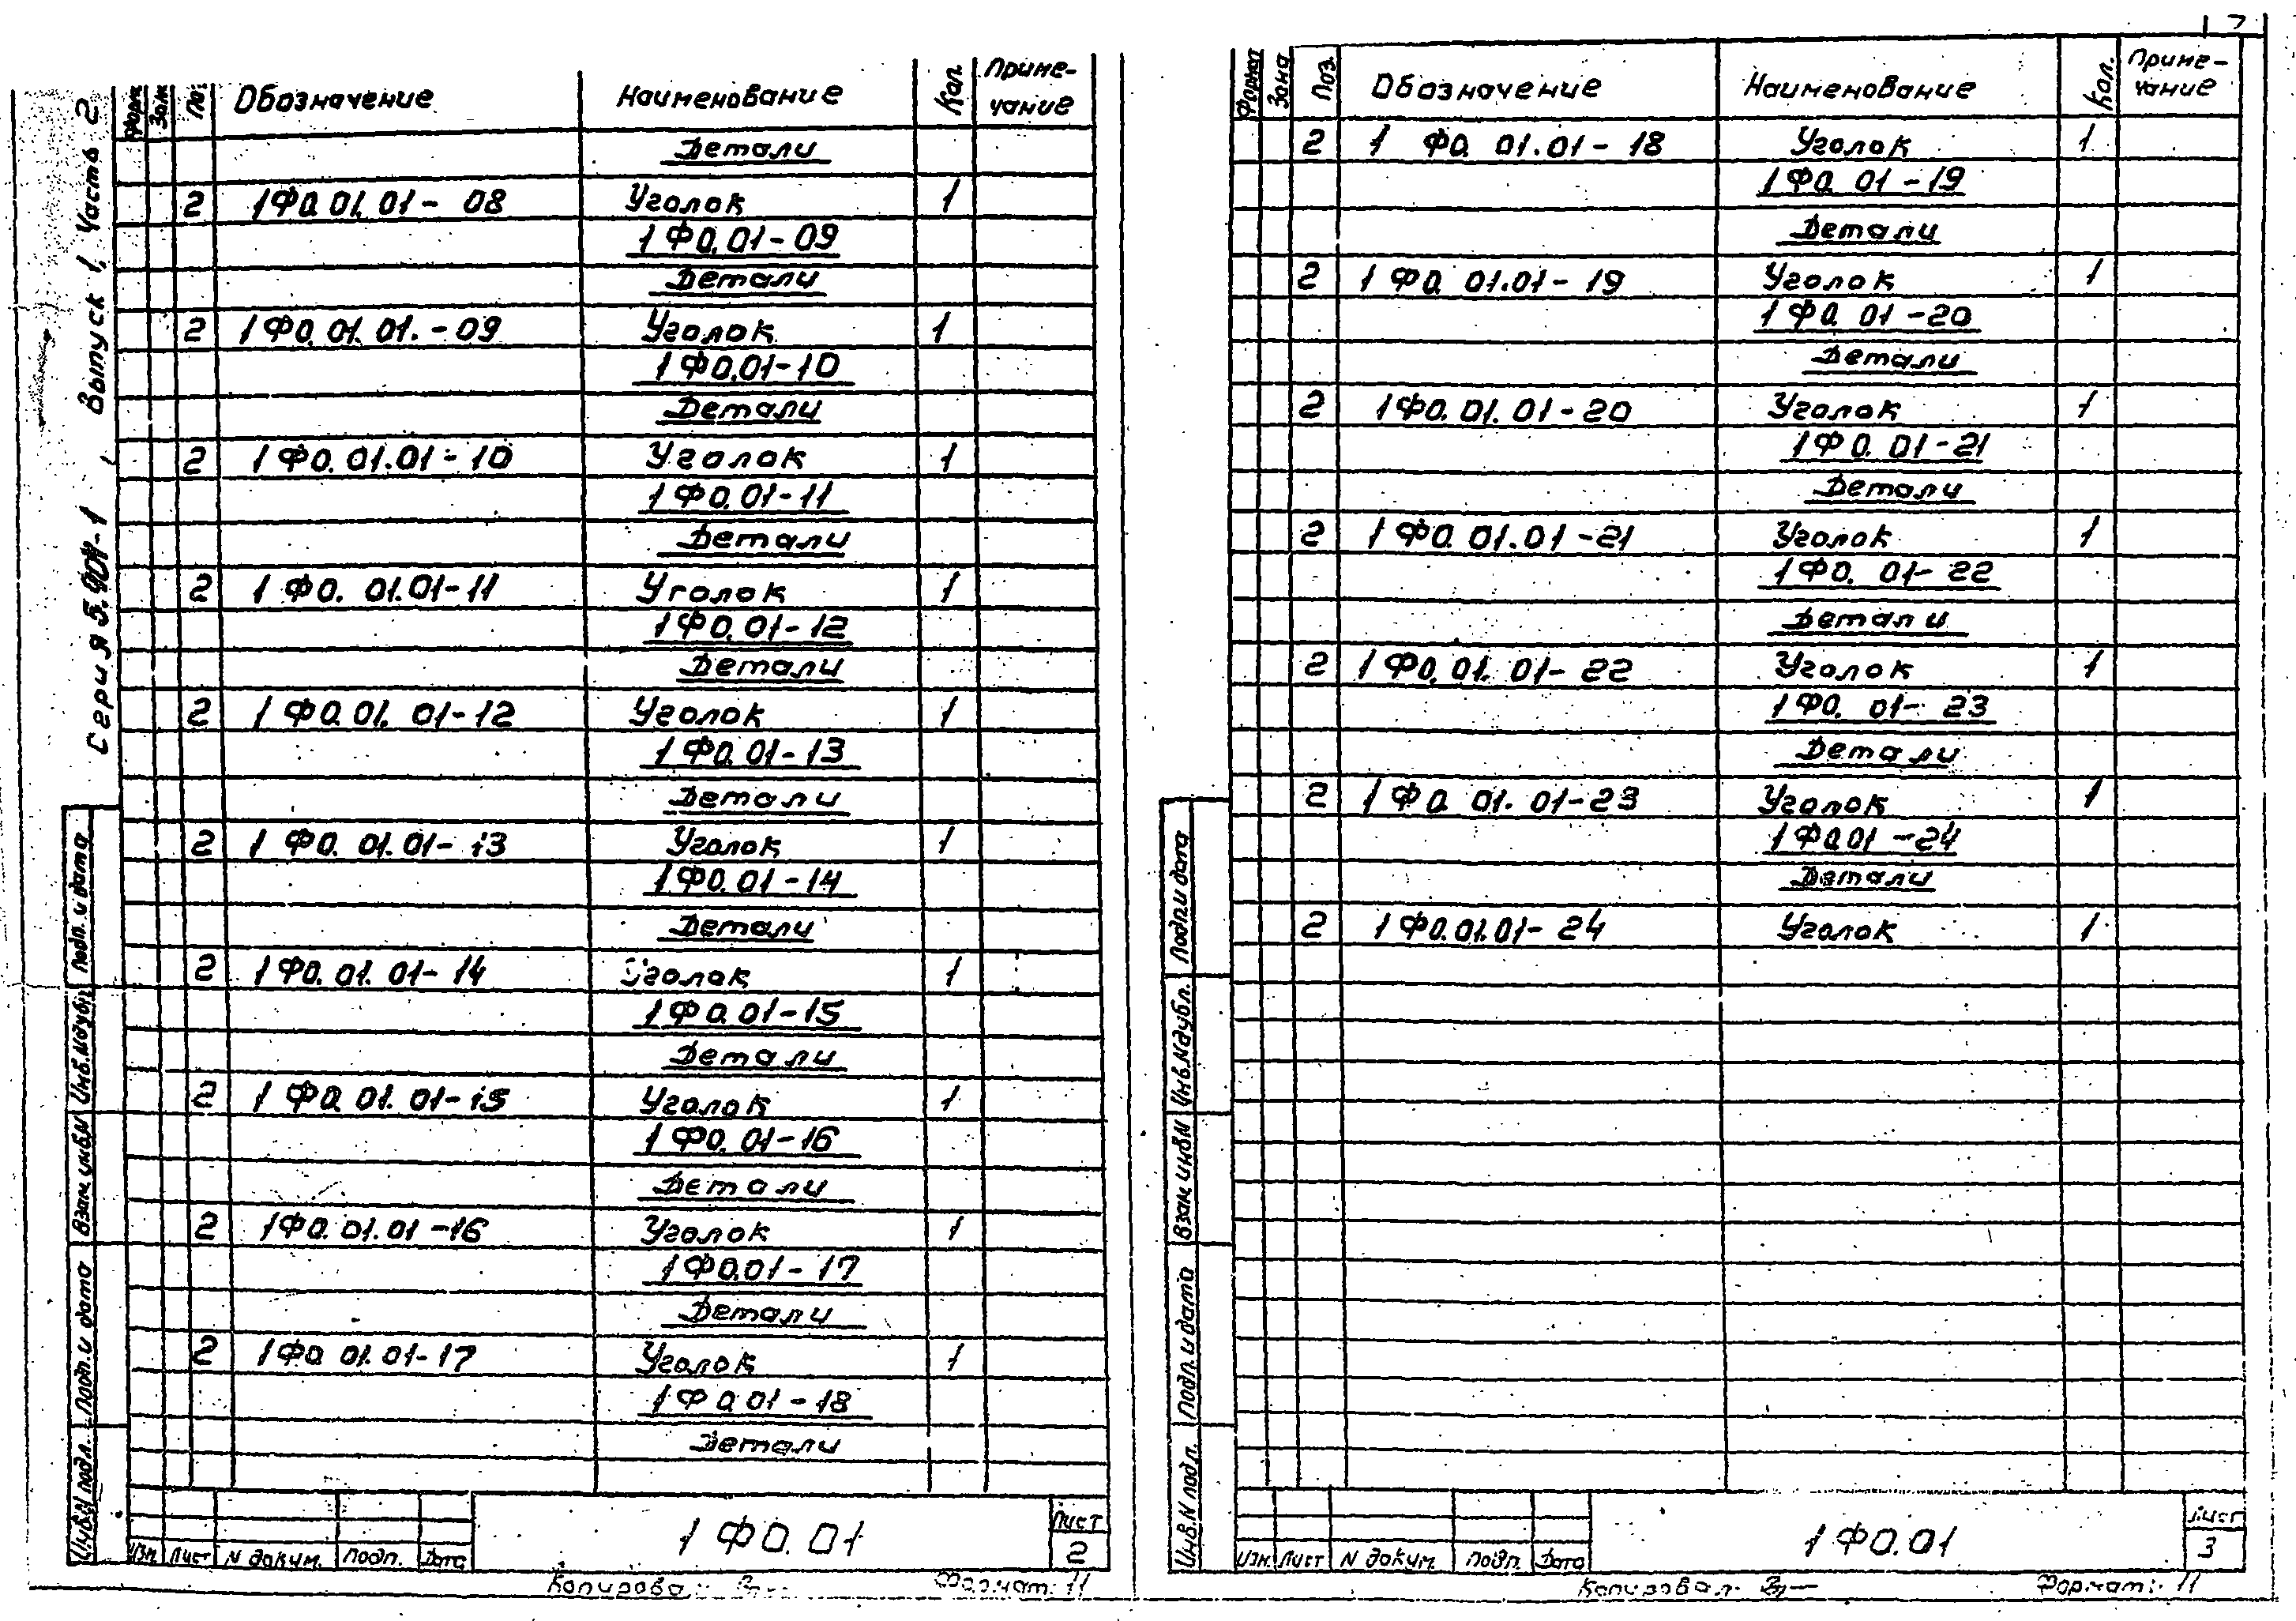 7
Серия 5.904-1, Выпуск 1, Часть 2
Форм Зон По. Обозначение Наименование Кол. Приме-
чание
Детали
2 1Ф0.01.01-08 Уголок 1
1Ф0.01-09
Детали
2 1Ф0.01.01.-09 Уголок 1
1Ф0.01-10
Детали
2 1Ф0.01.01-10 Уголок 1
1Ф0.01-11
Детали
2 1Ф0.01.01-11 Уголок 1
1Ф0.01-12
Детали
2 1Ф0.01.01-12 Уголок 1
1Ф0.01-13
Детали
2 1Ф0.01.01-13 Уголок 1
1Ф0.01-14
Детали
2 1Ф0.01.01-14 Уголок 1
1Ф0.01-15
Детали
2 1Ф0.01.01-15 Уголок 1
1Ф0.01-16
Детали
2 1Ф0.01.01-16 Уголок 1
1Ф0.01-17
Детали
2 1Ф0.01.01-17 Уголок 1
1Ф0.01-18
Детали
Подп. и дата
Инв.N дубл.
Взам. инв.N
Подп. и дата
Инв.N подл.
Изм. Лист N докум. Подп. Дата
1Ф0.01
Лист
2
Копировал: Формат: 11
Формат Зона Поз. Обозначение Наименование Кол. Приме-
чание
2 1Ф0.01.01-18 Уголок 1
1Ф0.01-19
Детали
2 1Ф0.01.01-19 Уголок 1
1Ф0.01-20
Детали
2 1Ф0.01.01-20 Уголок 1
1Ф0.01-21
Детали
2 1Ф0.01.01-21 Уголок 1
1Ф0.01-22
Детали
2 1Ф0.01.01-22 Уголок 1
1Ф0.01-23
Детали
2 1Ф0.01.01-23 Уголок 1
1Ф0.01-24
Детали
2 1Ф0.01.01-24 Уголок 1
Подп. и дата
Инв.N дубл.
Взам инв N
Подп. и дата
Инв.N подл.
Изм. Лист N докум. Подп. Дата
1Ф0.01
Лист
3
Копировал: Формат: 11